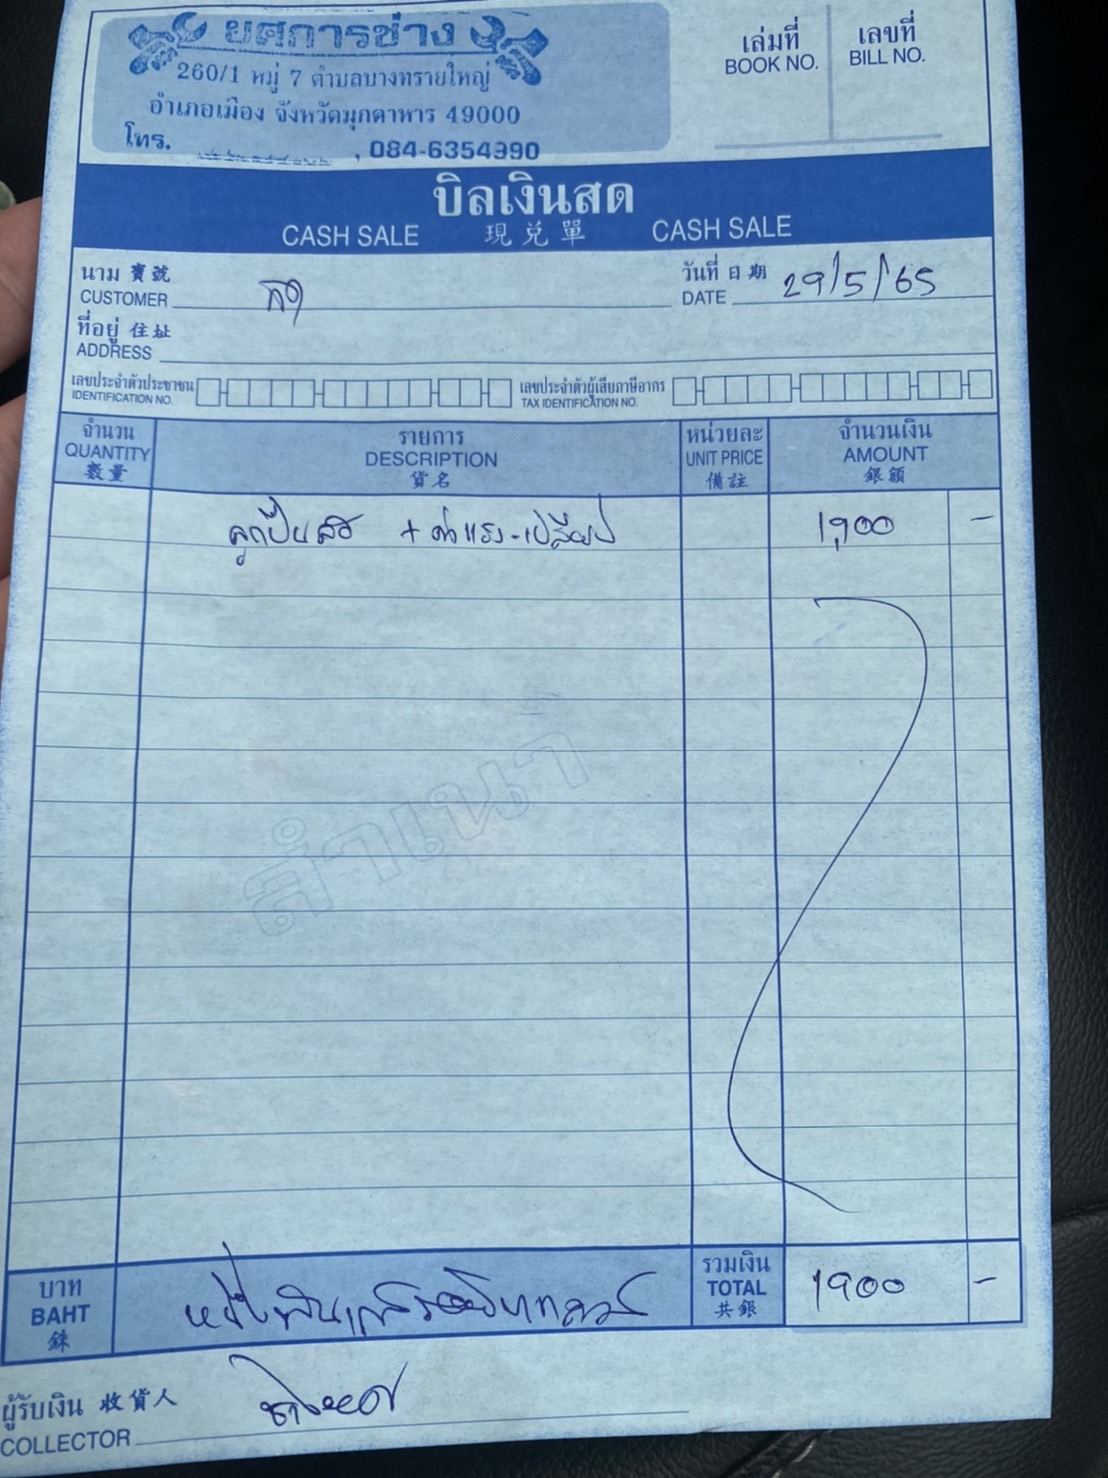 ยศการช่าง
260/1 หมู่ 7 ตำบลบางทรายใหญ่
อำเภอเมือง จังหวัดมุกดาหาร 49000
โทร. , 084-6354990
เล่มที่
BOOK NO.
เลขที่
BILL NO.
บิลเงินสด
CASH SALE 現兑單 CASH SALE
นาม 寶號
CUSTOMER
วันที่ 日期 29/5/65
DATE
ที่อยู่ 住址
ADDRESS
เลขประจำตัวประชาชน
IDENTIFICATION NO.
เลขประจำตัวผู้เสียภาษีอากร
TAX IDENTIFICATION NO.
จำนวน
QUANTITY
數量
รายการ
DESCRIPTION
貨名
หน่วยละ
UNIT PRICE
備註
จำนวนเงิน
AMOUNT
銀額
ลูกปืน + ค่าแรง-เปลี่ยน 1,900 -
สำเนา
บาท
BAHT
銖
หนึ่งพันเก้าร้อยบาทถ้วน
รวมเงิน
TOTAL
共銀
1900 -
ผู้รับเงิน 收貨人
COLLECTOR